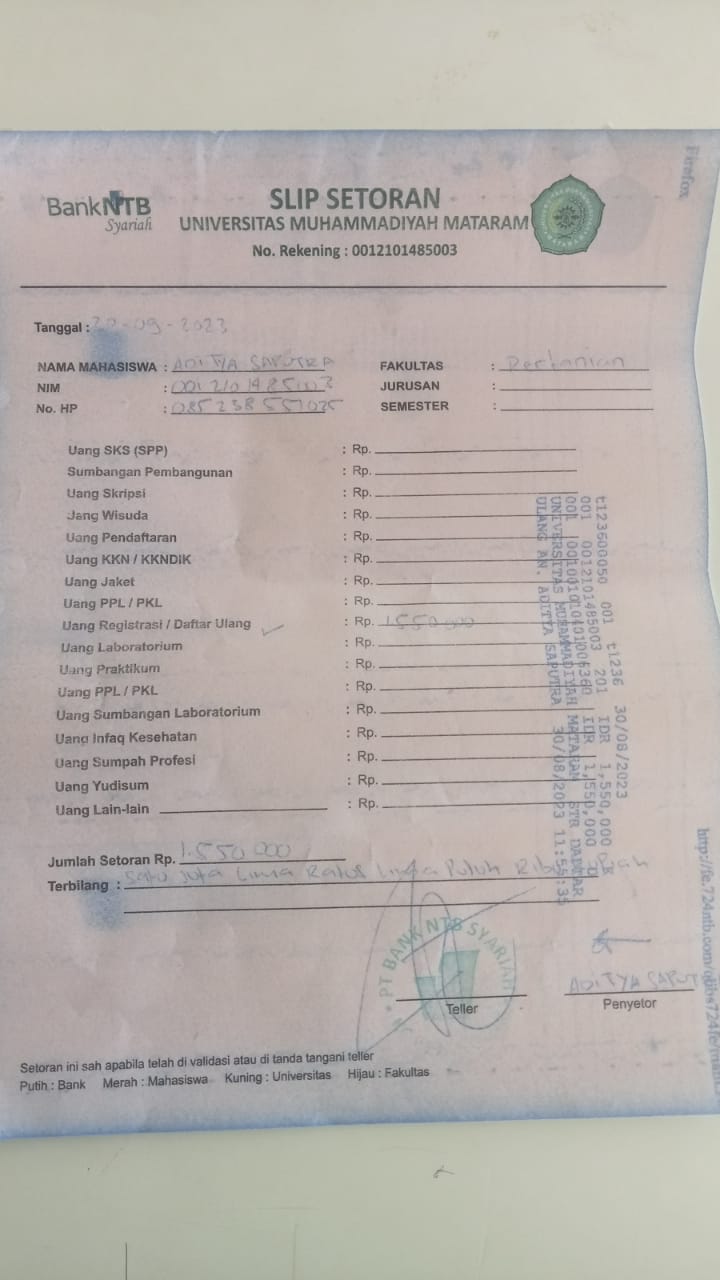 BankNTB
Syariah
SLIP SETORAN
UNIVERSITAS MUHAMMADIYAH MATARAM
No. Rekening : 0012101485003
Firefox
Tanggal : -09-2023
NAMA MAHASISWA : ADITYA SAPUTRA
FAKULTAS : Pertanian
NIM :
JURUSAN :
No. HP : 085238551025
SEMESTER :
Uang SKS (SPP) : Rp.
Sumbangan Pembangunan : Rp.
Uang Skripsi : Rp.
Uang Wisuda : Rp.
Uang Pendaftaran : Rp.
Uang KKN / KKNDIK : Rp.
Uang Jaket : Rp.
Uang PPL / PKL : Rp.
Uang Registrasi / Daftar Ulang ✓ : Rp. 1.550.000
Uang Laboratorium : Rp.
Uang Praktikum : Rp.
Uang PPL / PKL : Rp.
Uang Sumbangan Laboratorium : Rp.
Uang Infaq Kesehatan : Rp.
Uang Sumpah Profesi : Rp.
Uang Yudisum : Rp.
Uang Lain-lain : Rp.
t123600050 001 t1236 30/08/2023
001 0012101485003 201 IDR 1,550,000
001 IDR 1,550,000
UNIVERSITAS MUHAMMADIYAH MATARAM STR DAFTAR
ULANG AN. ADITYA SAPUTRA 30/08/2023 11:55:35
Jumlah Setoran Rp. 1.550.000
Terbilang : Satu Juta Lima Ratus Lima Puluh Ribu
PT BANK NTB SYARIAH
Teller
ADITYA SAPUT
Penyetor
Setoran ini sah apabila telah di validasi atau di tanda tangani teller
Putih : Bank Merah : Mahasiswa Kuning : Universitas Hijau : Fakultas